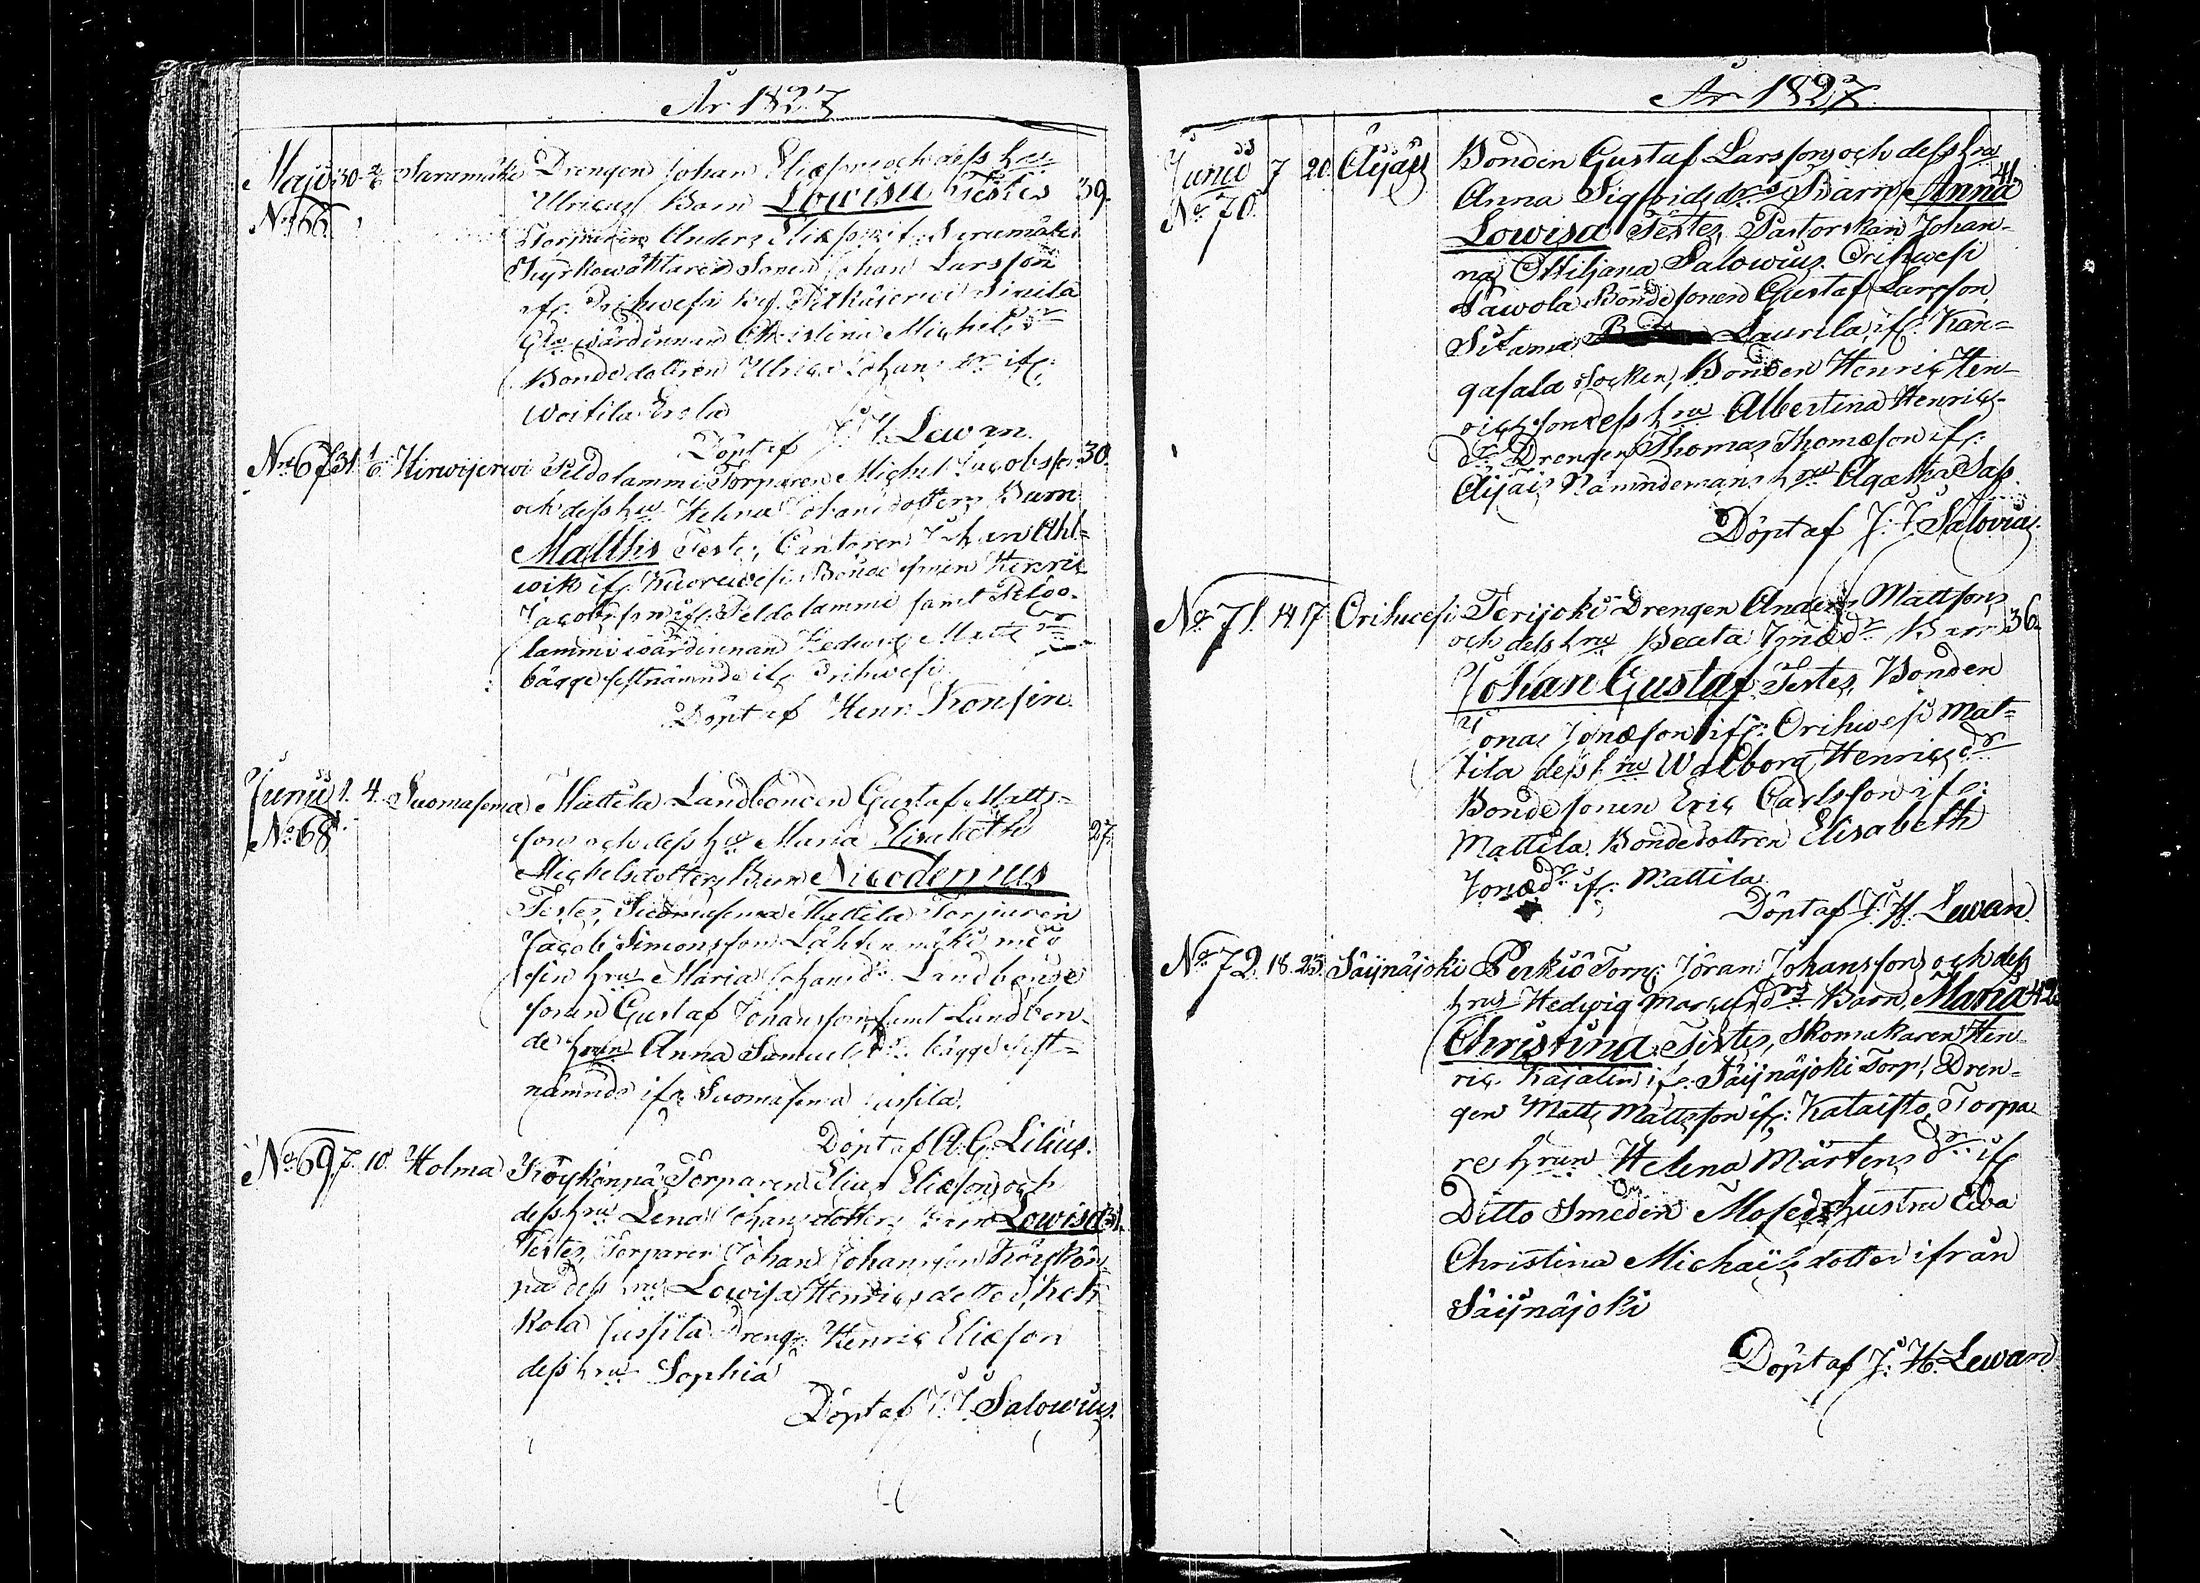 År 1827
Maji 30 2/6 Sarumäki Drengen Johan Eliæson och dess hru
No 66. Ulricas Barn Lowisa Testes 39.
Torparen Anders Eliæson i Sarumäki
Kyrkowäktaren Sonen Johan Larsson
ifr. Orihwesi
Wärdinnan Christina Michels dr
Bondedottren Ulrica Johans dr ifr.
Woitila Erola
Döpt af J. H. Lewan.
No 67 31. 1/6. Hirwijerwi Peldolammi Torparen Michel Jacobsson 30.
och dess hru Helena Johansdotters Barn
Matthis Testes, Cantoren Johan Ahl=
wik ifr. Kuorewesi Bondesonen Henric
Jacobsson ifr. Peldolammi samt Peldo-
lammi wärdinnan Hedwig Matts dr
bägge sistnämnde ifr. Orihwesi
Döpt af Henr. Konsin.
Junii 1. 4. Suomasema Mattila Landbonden Gustaf Matts=
No 68. sons och dess hru Maria Elisabeth 27.
Michelsdotters Barn Nicodemus
Testes, Suomasema Mattila Torparen
Jacob Simonsson Lähtenmäki med
sin hru Maria Johansdr. Landbonde
sonen Gustaf Johansson samt Landbon-
de hrun Anna Samuels dr. bägge sist=
nämnde ifr. Suomasema Jussila.
Döpt af A. G. Lilius.
No 69. 7. 10. Holma Köykönpä Torparen Elias Eliæsons och
dess hru Lena Johansdotters Barn Lowisa 31.
Testes, Torparen Johan Johansson Köykön
pä dess hru Lowisa Henricsdotter, Kek
kola Jussila Dreng. Henric Eliæson
dess hru Sophia
Döpt af J. J. Salowius.
År 1827.
Junii 7 20. Äijäis Bonden Gustaf Larssons och dess hru
No 70. Anna Sigfrids drs Barn Anna 41.
Lowisa Testes, Pastorskan Johan-
na Ottiljana Salowius. Orihwesi
Säwola Bondesonen Gustaf Larsson
Sitama Laurila, ifr. Kan=
gasala Socken, Bonden Henric Hen-
ricsson dess hru Albertina Henrics-
dr. Drengen Thomas Thomæson ifr.
Äijäis Nämndemans hru Agatha Sass.
Döpt af J. J. Salovius.
No 71. 14 17 Orihwesi Terijoki Drengen Anders Mattsons
och dess hru Beata Jonæ dr Barn 36.
Johan Gustaf Testes, Bonden
Jonas Jonæson ifr. Orihwesi Mat=
tila dess hru Walborg Henrics dr
Bondesonen Eric Carlsson ifr.
Mattila. Bondedottren Elisabeth
Jonæ dr ifr. Mattila.
Döpt af J. H. Lewan.
No 72. 18. 25. Säijnäjoki Perkiö Torp. Jöran Johanssons och dess
hrus Hedwig Marcus drs Barn, Maria 42.
Christina. Testes, Skomakaren Hen-
ric Kajalen ifr. Säijnäjoki Torp, Dren=
gen Matts Mattsson ifr. Kataisto, Torpa
re hrun Helena Mårtens dr. ifr
Ditto Smeden Moses hustru Ewa
Christina Michaëls dotter ifrån
Säijnäjoki
Döpt af J. H. Lewan